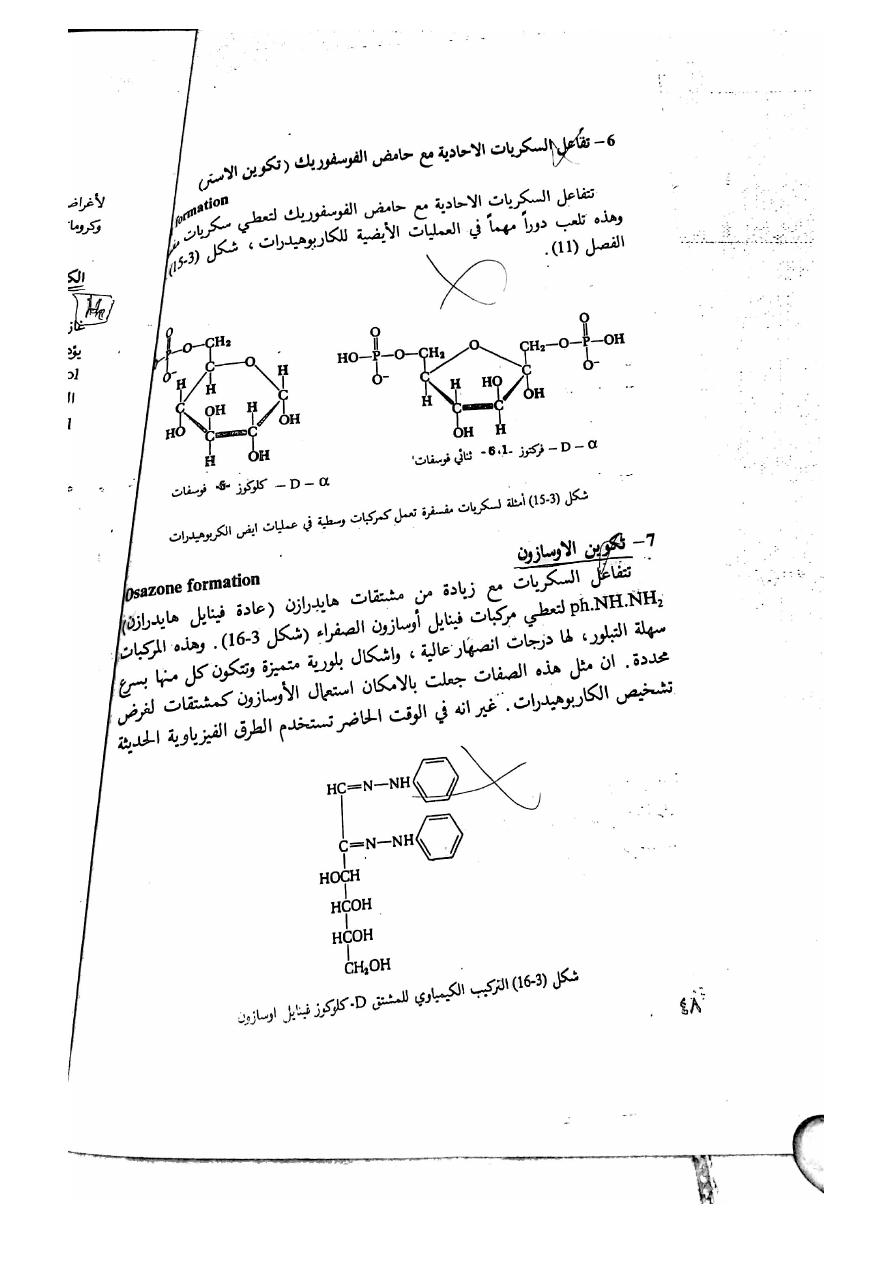 6 – تفاعل السكريات الاحادية مع حامض الفوسفوريك (تكوين الاستر)
formation
تتفاعل السكريات الاحادية مع حامض الفوسفوريك لتعطي سكريات
وهذه تلعب دوراً مهماً في العمليات الأيضية للكاربوهيدرات ، شكل (3-15)
الفصل (11).
α – D – فركتوز -1،6- ثنائي فوسفات
α – D – كلوكوز -6- فوسفات
شكل (3-15) أمثلة لسكريات مفسفرة تعمل كمركبات وسطية في عمليات ايض الكربوهيدرات
7 – تكوين الاوسازون
Osazone formation
تتفاعل السكريات مع زيادة من مشتقات هايدرازن (عادة فينايل هايدرازن)
ph.NH.NH₂ لتعطي مركبات فينايل أوسازون الصفراء (شكل 3-16). وهذه المركبات
سهلة التبلور، لها درجات انصهار عالية ، واشكال بلورية متميزة وتتكون كل منها بسرع
محددة. ان مثل هذه الصفات جعلت بالامكان استعمال الأوسازون كمشتقات لغرض
تشخيص الكاربوهيدرات. غير انه في الوقت الحاضر تستخدم الطرق الفيزياوية الحديثة
HC=N—NH
C=N—NH
HOCH
HCOH
HCOH
CH₂OH
شكل (3-16) التركيب الكيمياوي للمشتق D- كلوكوز فينايل اوسازون
٤٨